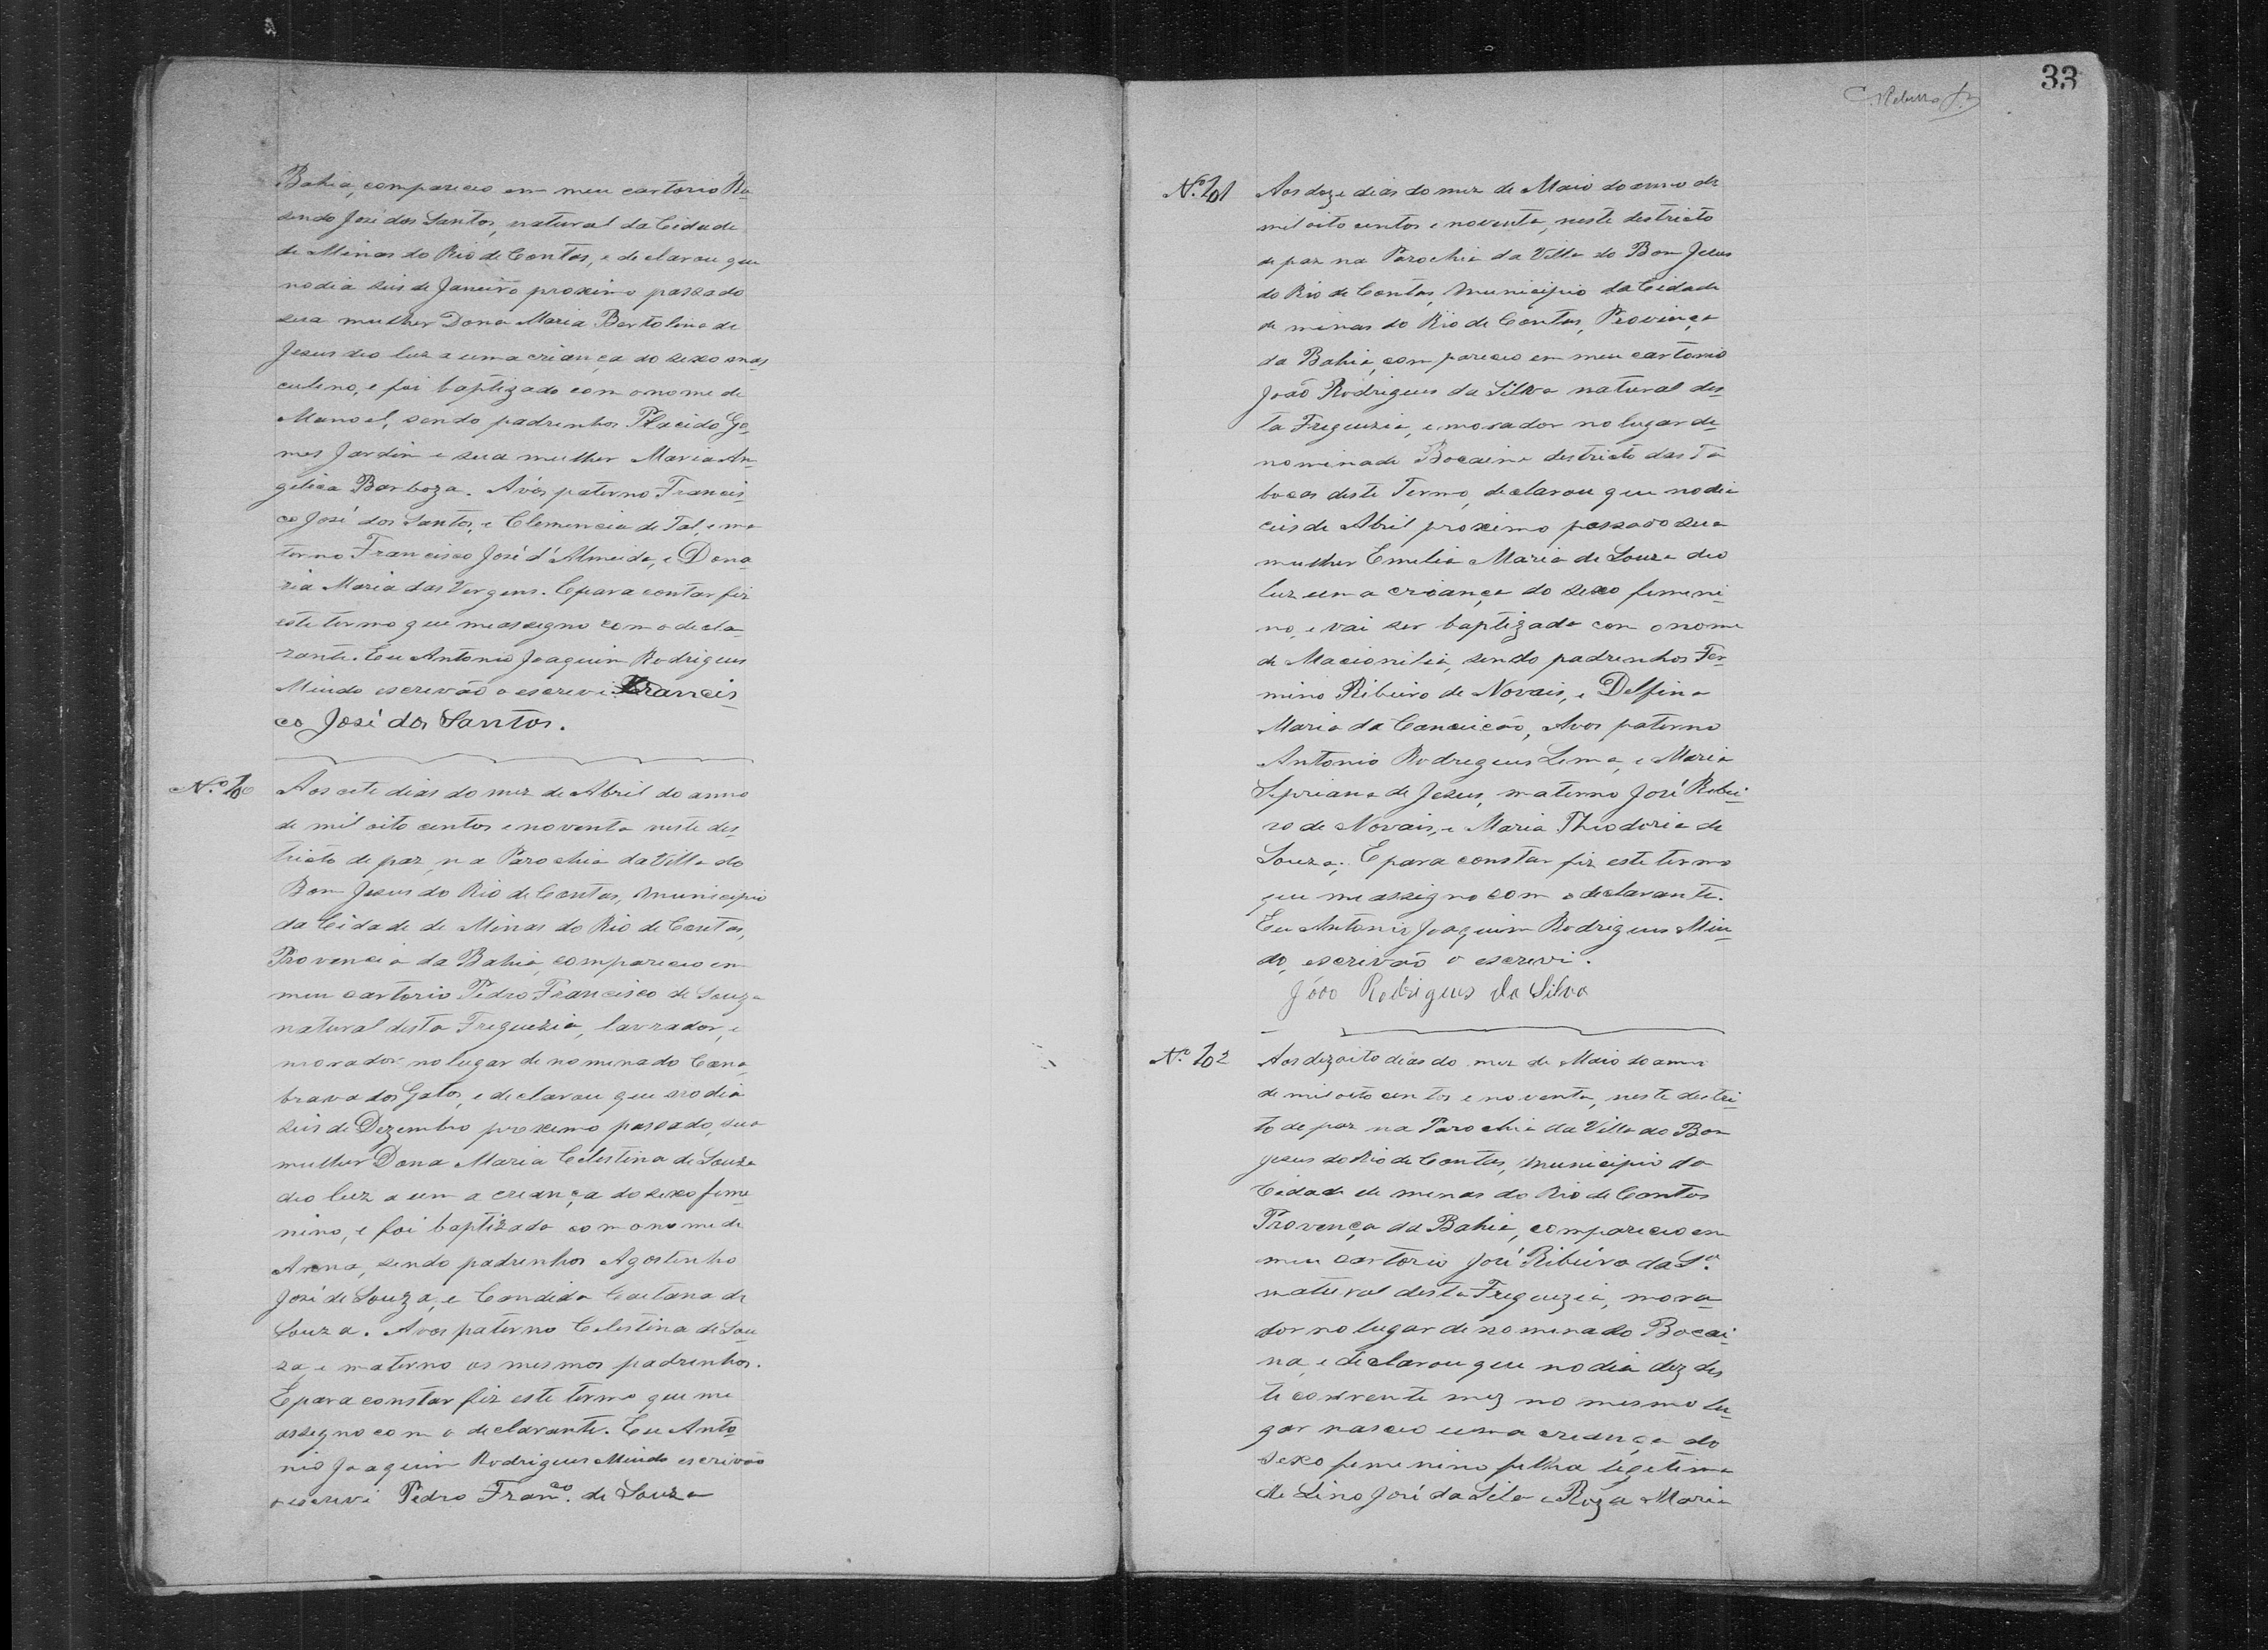 Bahia, compareceo em meu cartorio Ro-
sendo José dos Santos, natural da Cidade
de Minas do Rio de Contas, e declarou que
no dia seis de Janeiro proximo passado
sua mulher Dona Maria Bertolina de
Jesus deo luz a uma criança do sexo mas-
culino, e foi baptizado com o nome de
Manoel, sendo padrinhos Placido Go-
mes Jardim e sua mulher Maria An-
gelica Barboza. Avós paterno Francis-
co José dos Santos, e Clemencia de Tal, e ma-
terno Francisco José d'Almeida, e Dona-
ria Maria das Virgens. E para contar fiz
este termo que me assegno com o decla-
rante. Eu Antonio Joaquim Rodrigues
Miudo escrivão o escrevi. Francis-
co José dos Santos.
N.º 100
Aos cete dias do mez de Abril do anno
de mil oito centos e noventa neste des-
tricto de paz, na Parochia da Villa do
Bom Jesus do Rio de Contas, Municipio
da Cidade de Minas do Rio de Contas,
Provencia da Bahia, compareceo em
meu cartorio Pedro Francisco de Souza
natural desta Freguezia, lavrador, e
morador no lugar denominado Cana-
brava dos Gatos, e declarou que no dia
seis de Dezembro proxemo passado, sua
mulher Dona Maria Celestina de Souza
deo luz a uma criança do sexo feme-
nino, e foi baptizada com o nome de
Anna, sendo padrinhos Agostinho
José de Souza, e Candida Caetana de
Souza. Avos paterno Celestina de Sou-
za, e materno os mesmos padrinhos.
E para constar fiz este termo que me
assegno com o declarante. Eu Anto-
nio Joaquim Rodrigues Miudo escrivão
o escrevi Pedro Franco. de Souza
33
N.º 101
Aos doze dias do mez de Maio do anno de
mil oito centos e noventa, neste destricto
de paz na Parochia da Villa do Bom Jesus
do Rio de Contas, Municipio da Cidade
de minas do Rio de Contas, Provinça
da Bahia, compareceo em meu cartorio
João Rodrigues da Silva natural des-
ta Freguezia, e morador no lugar de-
nominado Bocaina destricto das Ta-
bocas deste Termo, declarou que no dia
ceis de Abril proximo passado sua
mulher Emilia Maria de Souza deo
luz uma criança do sexo femeni-
no, e vai ser baptizada com o nome
de Macionilia, sendo padrinhos Fer-
mino Ribeiro de Novais, e Delfina
Maria da Conceicão, Avos paterno
Antonio Rodregues Lima, e Maria
Sipriana de Jesus, materno José Ribei-
ro de Novais, e Maria Theodoria de
Souza; E para constar fiz este termo
que me assigno com o declarante.
Eu Antonio Joaquim Rodrigues Miu-
do, escrivão o escrevi.
João Rodrigues da Silva
N.º 102
Aos dezoito dias do mez de Maio do anno
de mil oito centos e noventa, neste destri-
to de paz na Parochia da Villa do Bom
Jesus do Rio de Contas, Municipio da
Cidade de minas do Rio de Contas
Provença da Bahia, compareceo em
meu cartorio José Ribeiro da Sa.
natural desta Freguezia, mora-
dor no lugar denominado Bocai-
na, e declarou que no dia dez des-
te corrente mez no mesmo lu-
gar nasceo uma creança do
sexo femenino filha legetima
de Lino José da Sila e Roza Maria